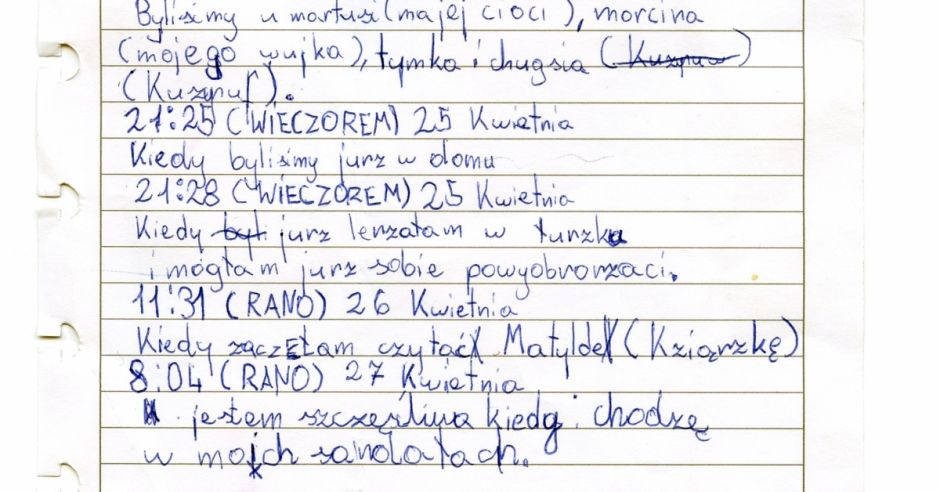 Byliśmy u martusi (majej cioci), morcina
(mojego wujka), tymka i chugsia (Kuzynuw)
(Kuzynuf).
21:25 (WIECZOREM) 25 Kwietnia
Kiedy byliśmy jurz w domu
21:28 (WIECZOREM) 25 Kwietnia
Kiedy był jurz lenzałam w łunzku
i mogłam jurz sobie powyobrorzaci.
11:31 (RANO) 26 Kwietnia
Kiedy zaczęłam czytać Matylde (Ksiąrzkę)
8:04 (RANO) 27 Kwietnia
jestem szczęśliwa kiedy chodzę
w moich sandałach.